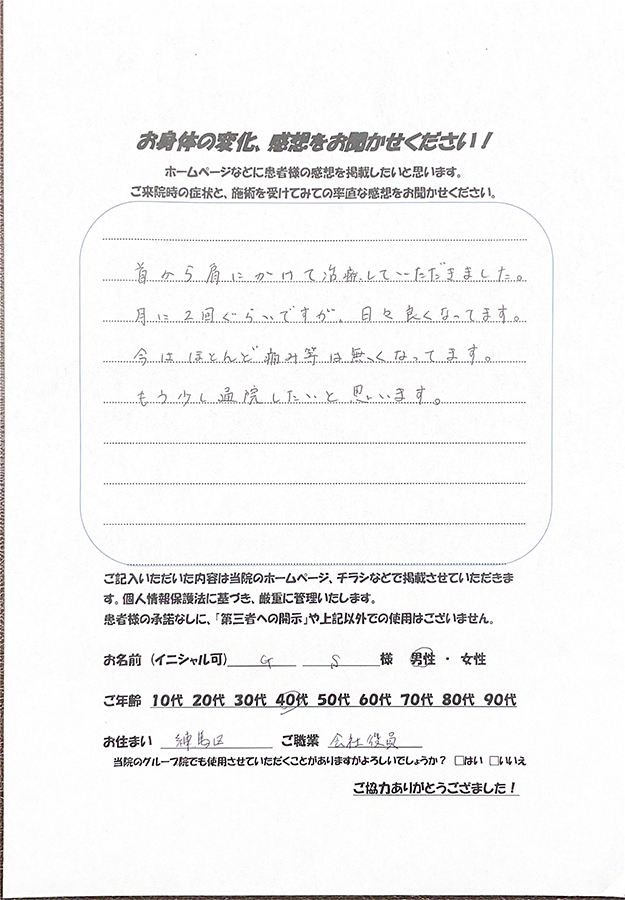 お身体の変化、感想をお聞かせください！
ホームページなどに患者様の感想を掲載したいと思います。
ご来院時の症状と、施術を受けてみての率直な感想をお聞かせください。
首から肩にかけて治療していただきました。
月に2回ぐらいですが、日々良くなってます。
今はほとんど痛み等は無くなってます。
もう少し通院したいと思います。
ご記入いただいた内容は当院のホームページ、チラシなどで掲載させていただきま
す。個人情報保護法に基づき、厳重に管理いたします。
患者様の承諾なしに、「第三者への開示」や上記以外での使用はございません。
お名前（イニシャル可） G S 様 男性 ・ 女性
ご年齢 10代 20代 30代 40代 50代 60代 70代 80代 90代
お住まい 練馬区 ご職業 会社役員
当院のグループ院でも使用させていただくことがありますがよろしいでしょうか？ □はい □いいえ
ご協力ありがとうござました！